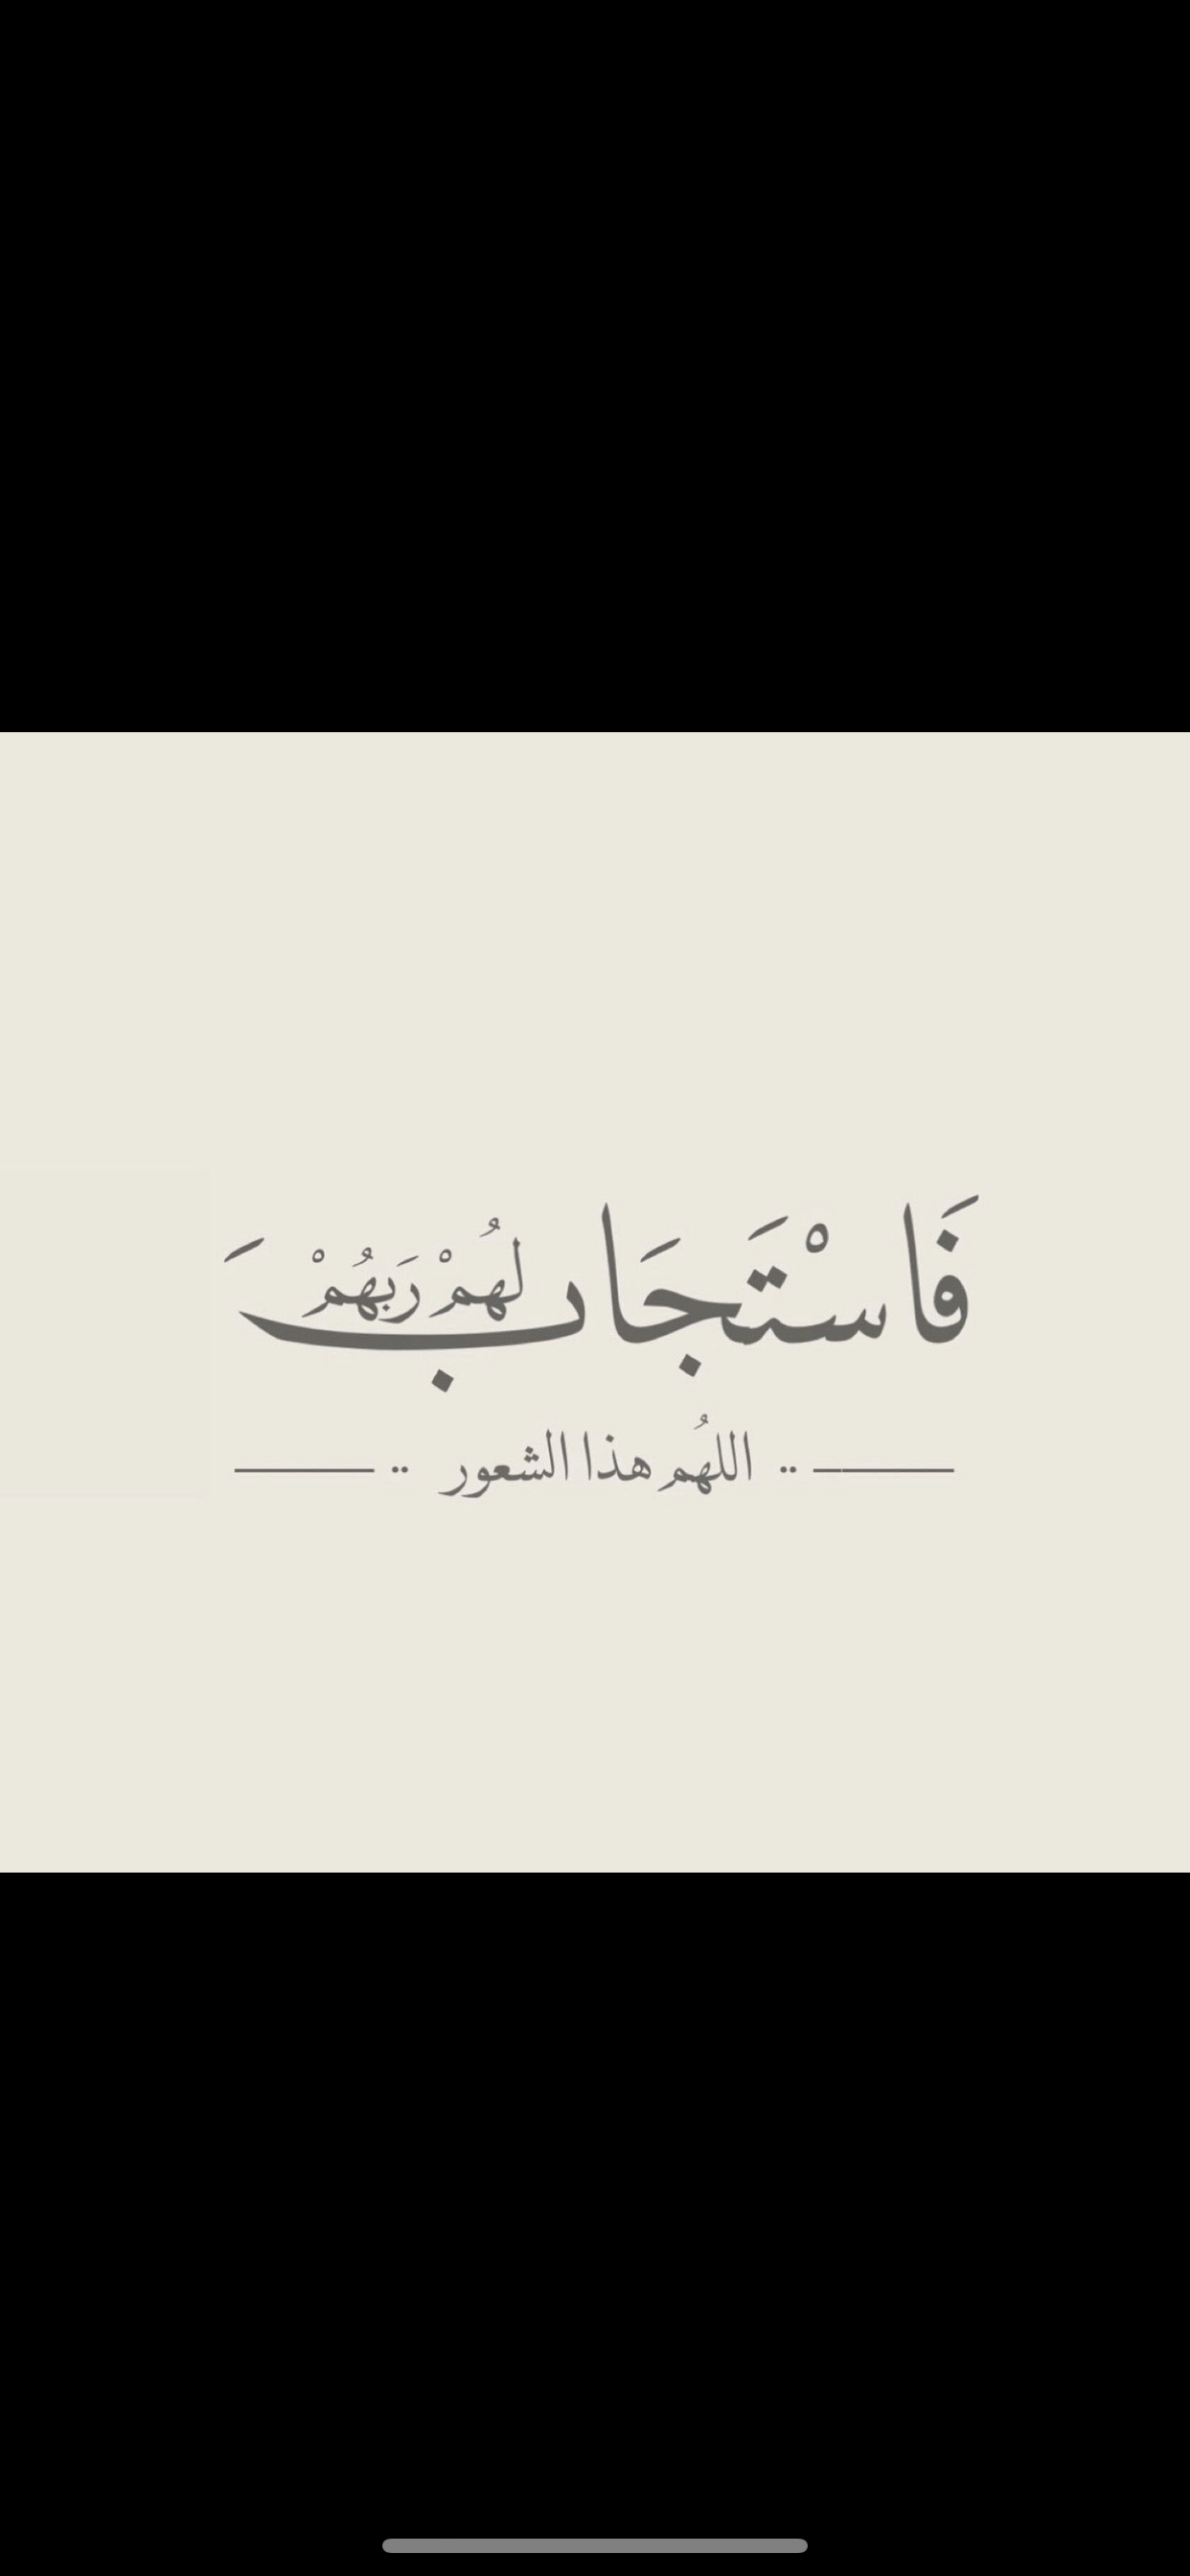 فَاسْتَجَابَ لَهُمْ رَبُهُمْ
.. اللهُم هذا الشعور ..